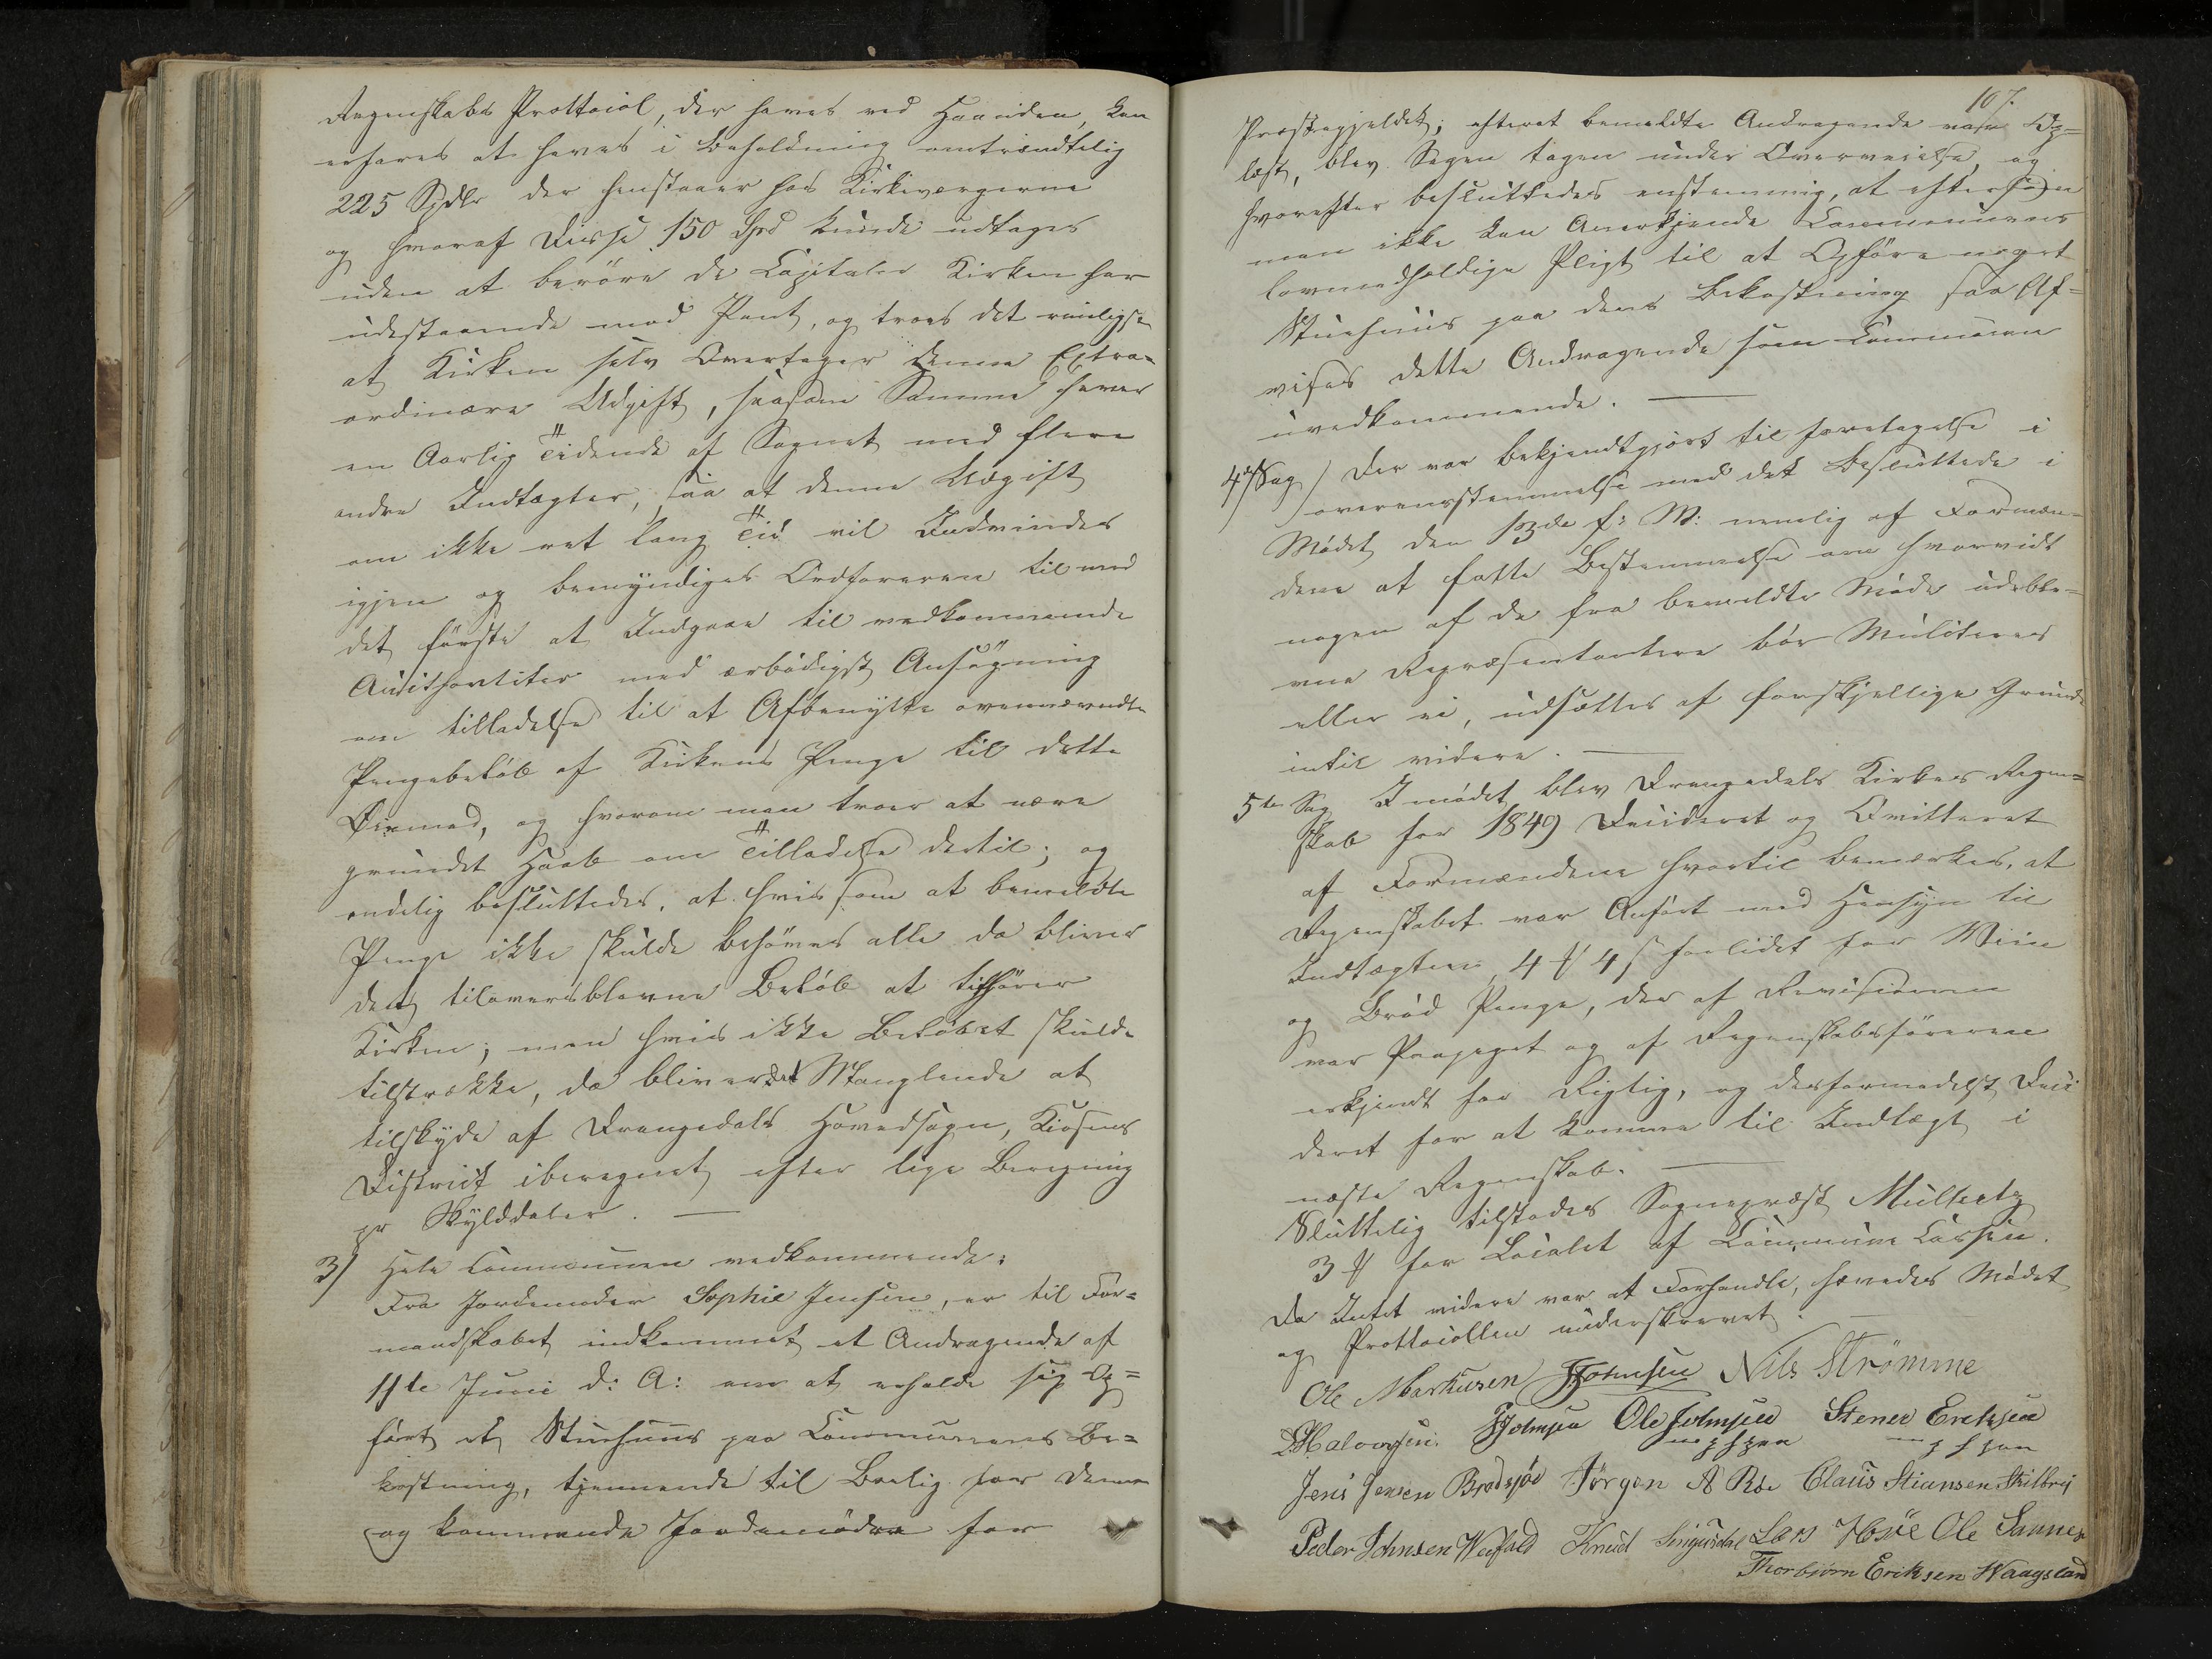 Regnskabs Prottocol, der haves ved Haanden, kan
erfares at haves i Beholdning omtrændtelig
225 Spdlr der henstaaer hos Kirkeværgerne
og hvoraf disse 150 Spd kunde udtages
uden at berøre de Capitaler Kirken har
udestaaende mod Pant, og troes det rimeligst
at Kirken selv Overtager denne Extra=
ordinære Udgift, saasom Samme haver
en Aarlig Tidende af Sognet med flere
andre Indtægter, saa at denne Udgift
om ikke ret lang Tid vil Indvindes
igjen og bemyndiges Ordføreren til med
det første at Indgaae til vedkommende
Auithorititer med ærbødigst Ansøgning
om tilladelse til at Afbenytte ovennævndte
Pengebeløb af Kirkens Penge til dette
Øiemed, og hvorom man troer at være
grundet Haab om Tilladelse dertil; og
endelig besluttedes, at hvis som at bemeldte
Penge ikke skulde behøves alle da bliver
det tiloversblevne Beløb at tilhører
Kirken; men hvis ikke Beløbet skulde
tilstrække, da bliver det Manglende at
tilskyde af Drangedals Hovedsogn, Kiosens
District iberegnet efter lige Beregning
pr Skylddaler. —
3) Hele Communen vedkommende:
Fra Jordemoder Sophie Jensen, er til For=
mandskabet indkommet et Andragende af
11te Juni d: A: om at erholde sig Op=
ført et Stuehuus paa Communens Be=
kostning, tjennende til Bolig for denne
og kommende Jordemødre for
107.
Præstegjeldet; efterat bemeldte Andragende var Op=
læst, blev Sagen tagen under Overveielse, og
hvorefter besluttedes enstemmig, at eftersom
man ikke kan Anerkjende Communens
lovmedholdige Pligt til at Opføre noget
Stuehuus paa dens Bekostning saa Af=
vises dette Andragende som Communen
uvedkommende. —
4de Sag) Der var bekjendtgjørt til foretagelse i
overensstemmelse med det Besluttede i
Mødet den 13de f: M: nemlig af Formæn=
dene at fatte Bestemmelse om hvorvidt
nogen af de fra bemeldte Møde udeble=
vne Repræsentantere bør Mulcteres
eller ei, udsættes af forskjellige Grunde
intil videre. —
5te Sag I mødet blev Drangedals Kirkes Regn=
skab for 1849 Decideret og Qvitteret
af Formændene hvortil bemærkes, at
Regnskabet var Anført med Hensyn til
Indtægten 4 4 s forlidet for Viin
og Brød Penge, der af Revisionen
var Paapeget og af Regnskabsføreren
erkjendt for Rigtig, og desformedelst Deci
deret for at komme til Indtægt i
næste Regnskab. —
Sluttelig tilstodes Sognepræst Mülhertz
3 for Localet af Commune Cassen.
Da Intet videre var at Forhandle, hævedes Mødet
og Prottocollen underskrevet. —
Ole Markusen Johnsen Nils Strömme
Halvorsen Johnsen Ole Johnsen Stener Eriksen
m p h pen m p h pen
Jens Jensen Brødsjøe Jörgen A Röe Claus Stiansen
Peder Johnsen Knud Lars Ole Sannes
Thorbjørn Eriksen Waagsland